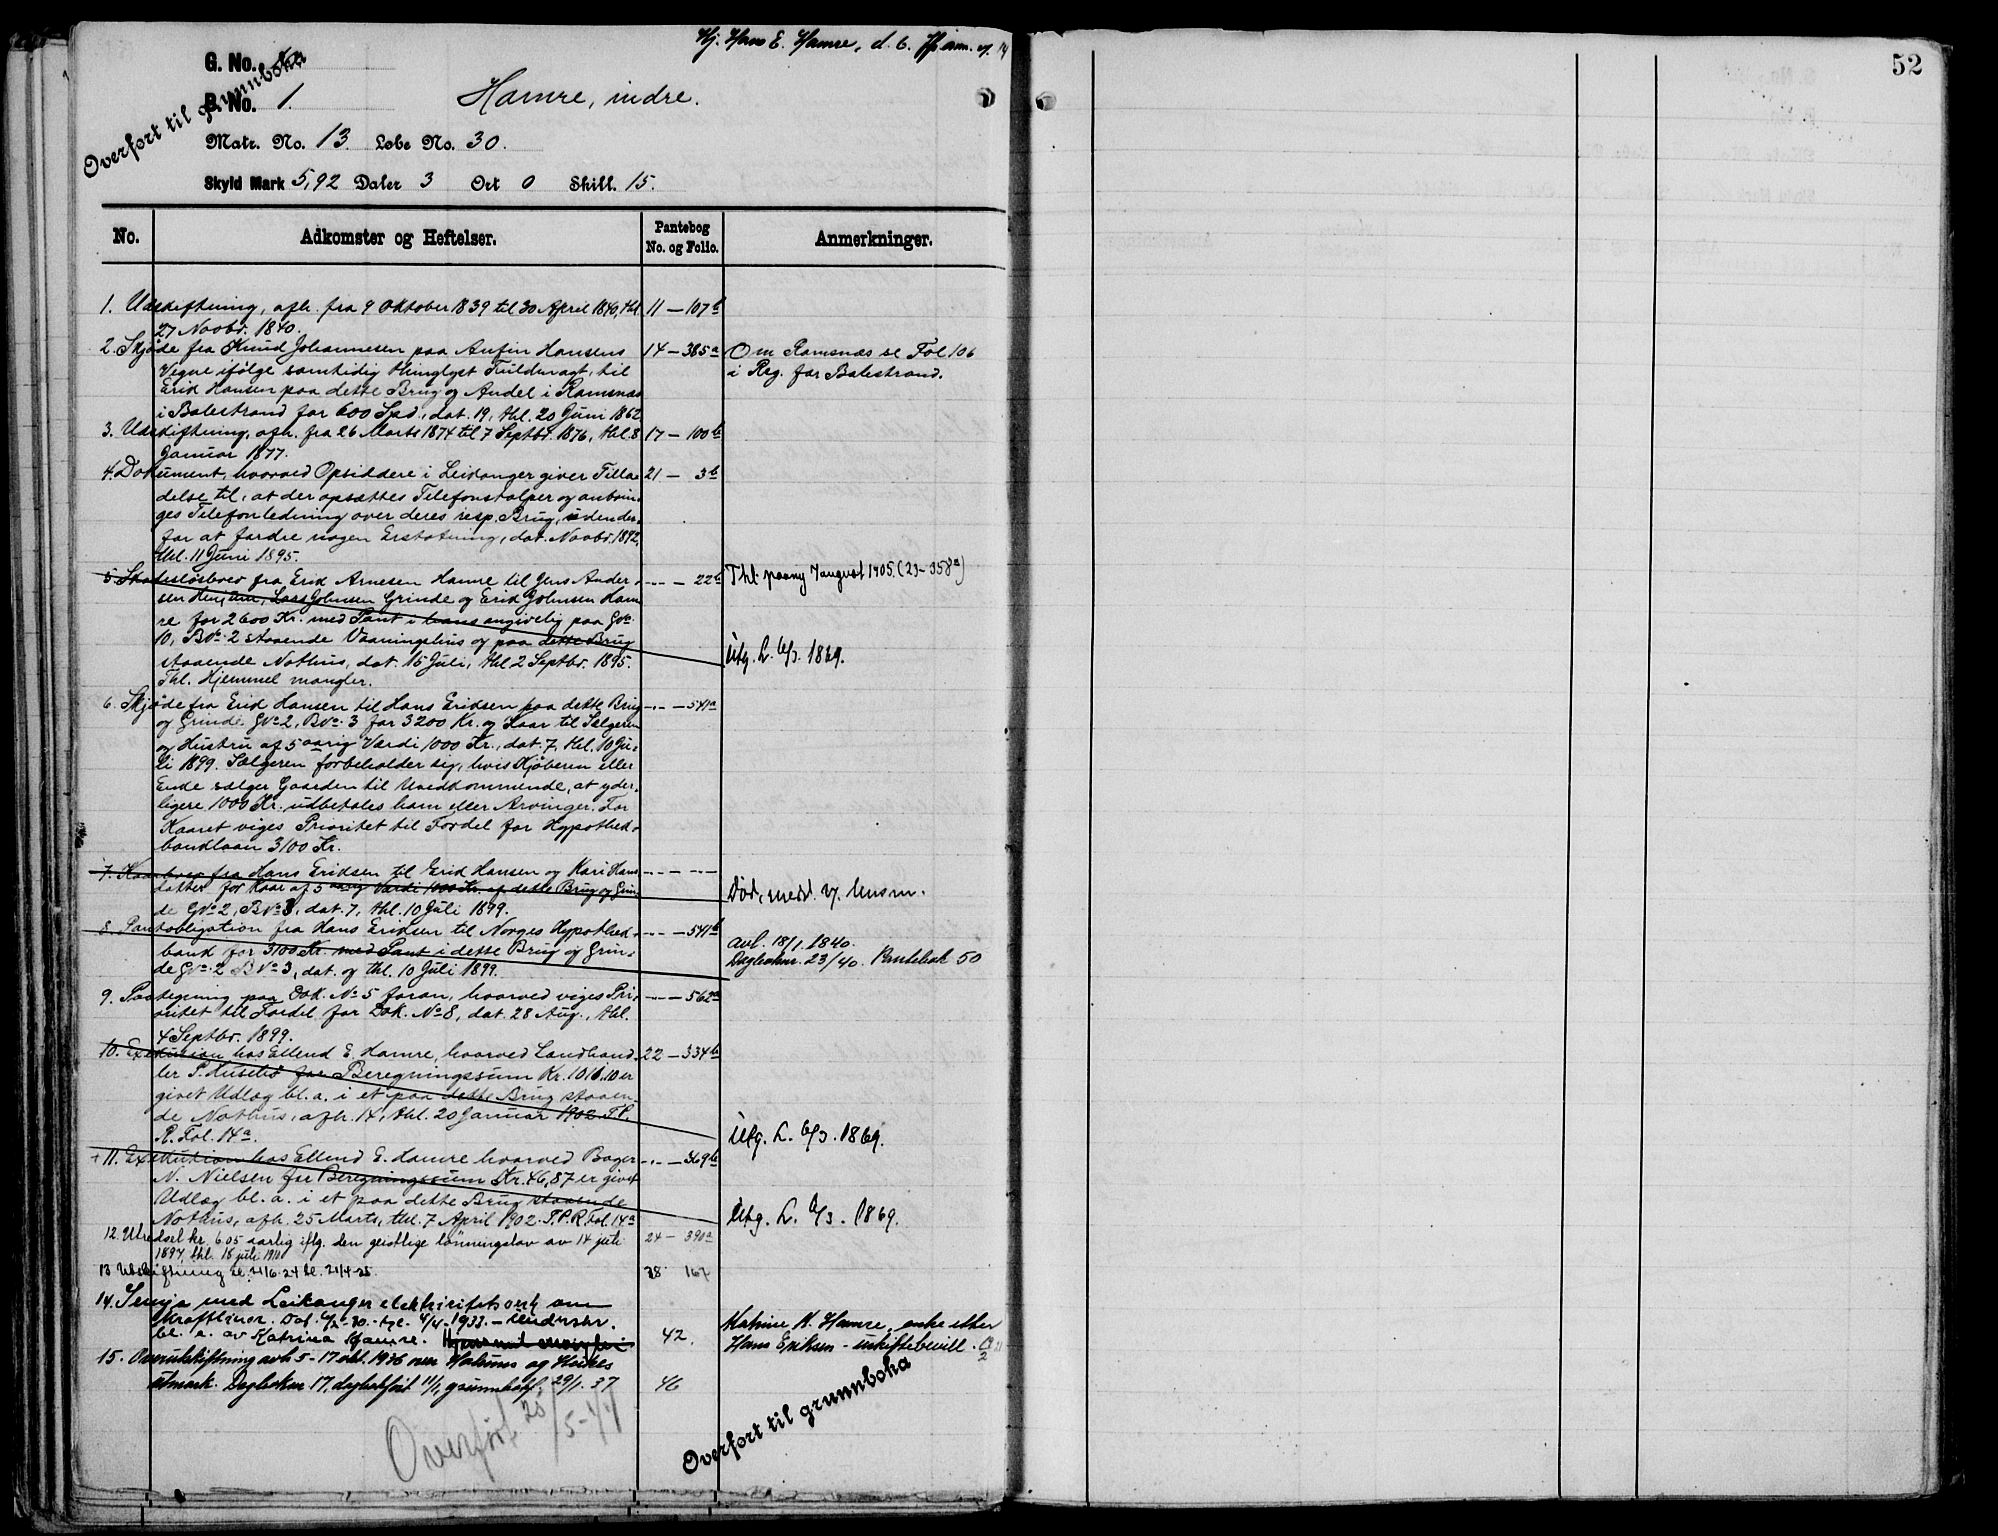 Hj. Hans E. Hamre, d. 6.
G. No.
Overført til grunnboka
B. No. 1.
Hamre, indre.
Matr. No. 13. Løbe No. 30.
Skyld Mark 5,92 Daler 3 Ort 0 Skill. 15.
52
No. Adkomster og Heftelser. Pantebog No. og Folio. Anmerkninger.
1. Udskiftning, afh. fra 9 Oktober 1839 til 30 April 1840, thl. 11 — 107b
27 Novbr. 1840.
2. Skjøde fra Knud Johannesen paa Anfin Hansens 14 — 385a Om Ramsnæs se Fol 106
Vegne ifølge samtidig thinglyst Fuldmagt, til i Reg. for Balestrand.
Erik Hansen paa dette Brug og Andel i Ramsnæs
i Balestrand for 600 Spd., dat. 19, thl. 20 Juni 1862
3. Udskiftning, afh. fra 26 Marts 1874 til 7 Septbr. 1876, thl. 8 17 — 100b
Januar 1877.
4. Dokument, hvorved Opsiddere i Leikanger giver Tilla= 21 — 3b
delse til, at der opsættes Telefonstolper og anbrin=
ges Telefonledning over deres resp. Brug, uden der=
for at fordre nogen Erstatning, dat. Novbr. 1892,
thl. 11 Juni 1895.
5. Skadesløsbrev fra Erik Arnesen Hamre til Jens Ander= -"- — 22b Thl. paany 7 august 1905. (23-358a)
sen Henjum, Lars Johnsen Grinde og Erik Johnsen Ham=
re for 2600 Kr. med Pant i hans angivelig paa GNo.
10, BNo. 2 staaende Vaaningshus og paa dette Brug
staaende Nothus, dat. 15 Juli, thl. 2 Septbr. 1895. Utg. L. 6/3. 1869.
Thl. Hjemmel mangler.
6. Skjøde fra Erik Hansen til Hans Eriksen paa dette Brug -"- — 541a
og Grinde GNo 2, BNo. 3 for 3200 Kr. og Kaar til Sælgeren
og Hustru af 5 aarig Værdi 1000 Kr., dat. 7, thl. 10 Ju=
li 1899. Sælgeren forbeholder sig, hvis Kjøberen eller
Enke sælger Gaarden til Uvedkommende, at yder=
ligere 1000 Kr. udbetales ham eller Arvinger. For
Kaaret viges Prioritet til Fordel for Hypothek=
banklaan 3100 Kr.
7. Kaarbrev fra Hans Eriksen til Erik Hansen og Kari Hans -"- — -"-
datter for Kaar af 5 aarig Værdi 1000 Kr. af dette Brug og Grin= Død, medd. v/ lensm.
de GNo 2, BNo 3, dat. 7, thl. 10 Juli 1899.
8. Pantobligation fra Hans Eriksen til Norges Hypothek= -"- — 541b
bank for 3100 Kr. med Pant i dette Brug og Grin= avl. 18/1. 1940.
de GNo 2 BNo 3, dat. og thl. 10 Juli 1899. Dagboknr. 23/40. Pantebok 50
9. Paategning paa Dok. No 5 foran, hvorved viges Pri= -"- — 562a
oritet til Fordel for Dok. No 8, dat. 28 Aug., thl.
4 Septbr. 1899.
10. Exekution hos Ellend E. Hamre, hvorved Landhand= 22 — 334b
ler P. Husebø for Beregningssum Kr. 1010.10 er
givet Udlæg bl. a. i et paa dette Brug staaen=
de Nothus, afh. 14, thl. 20 Januar 1902 T.P.
R. Fol. 14a. Utg. L. 6/3. 1869.
11. Exekution hos Ellend E. Hamre hvorved Bager -"- — 369b
N. Nielsen for Beregningssum Kr. 46,87 er givet
Udlæg bl. a. i et paa dette Brug staaende
Nothus, afh. 25 Marts, thl. 7 April 1902. T.P.R. Fol. 14a Utg. L. 6/3. 1869.
12. Utredsel kr. 6 05 aarlig iflg. den geistlige lønningslov av 14 juli 24 — 390a
1897, thl. 18 juli 1910
13 Utskiftning sl. 21/6-24 tl. 21/4-25. 38 167
14. Semja med Leikanger elektrisitetsverk om
Kraftlinor. Dat. 30. tgl. 4/4-1933. — Underskr.
bl. a. av Katrina Hamre. 42. Katrine H. Hamre, enke etter
Hans Eriksen - uskiftebevill.
15. Overutskiftning avh 5-17 okt. 1936 over Hamres og Henjes
utmark. Dagboknr 17, dagbokført 11/1, grunnbokf. 29/1. 37 46
Overført 25/5-44
Overført til grunnboka